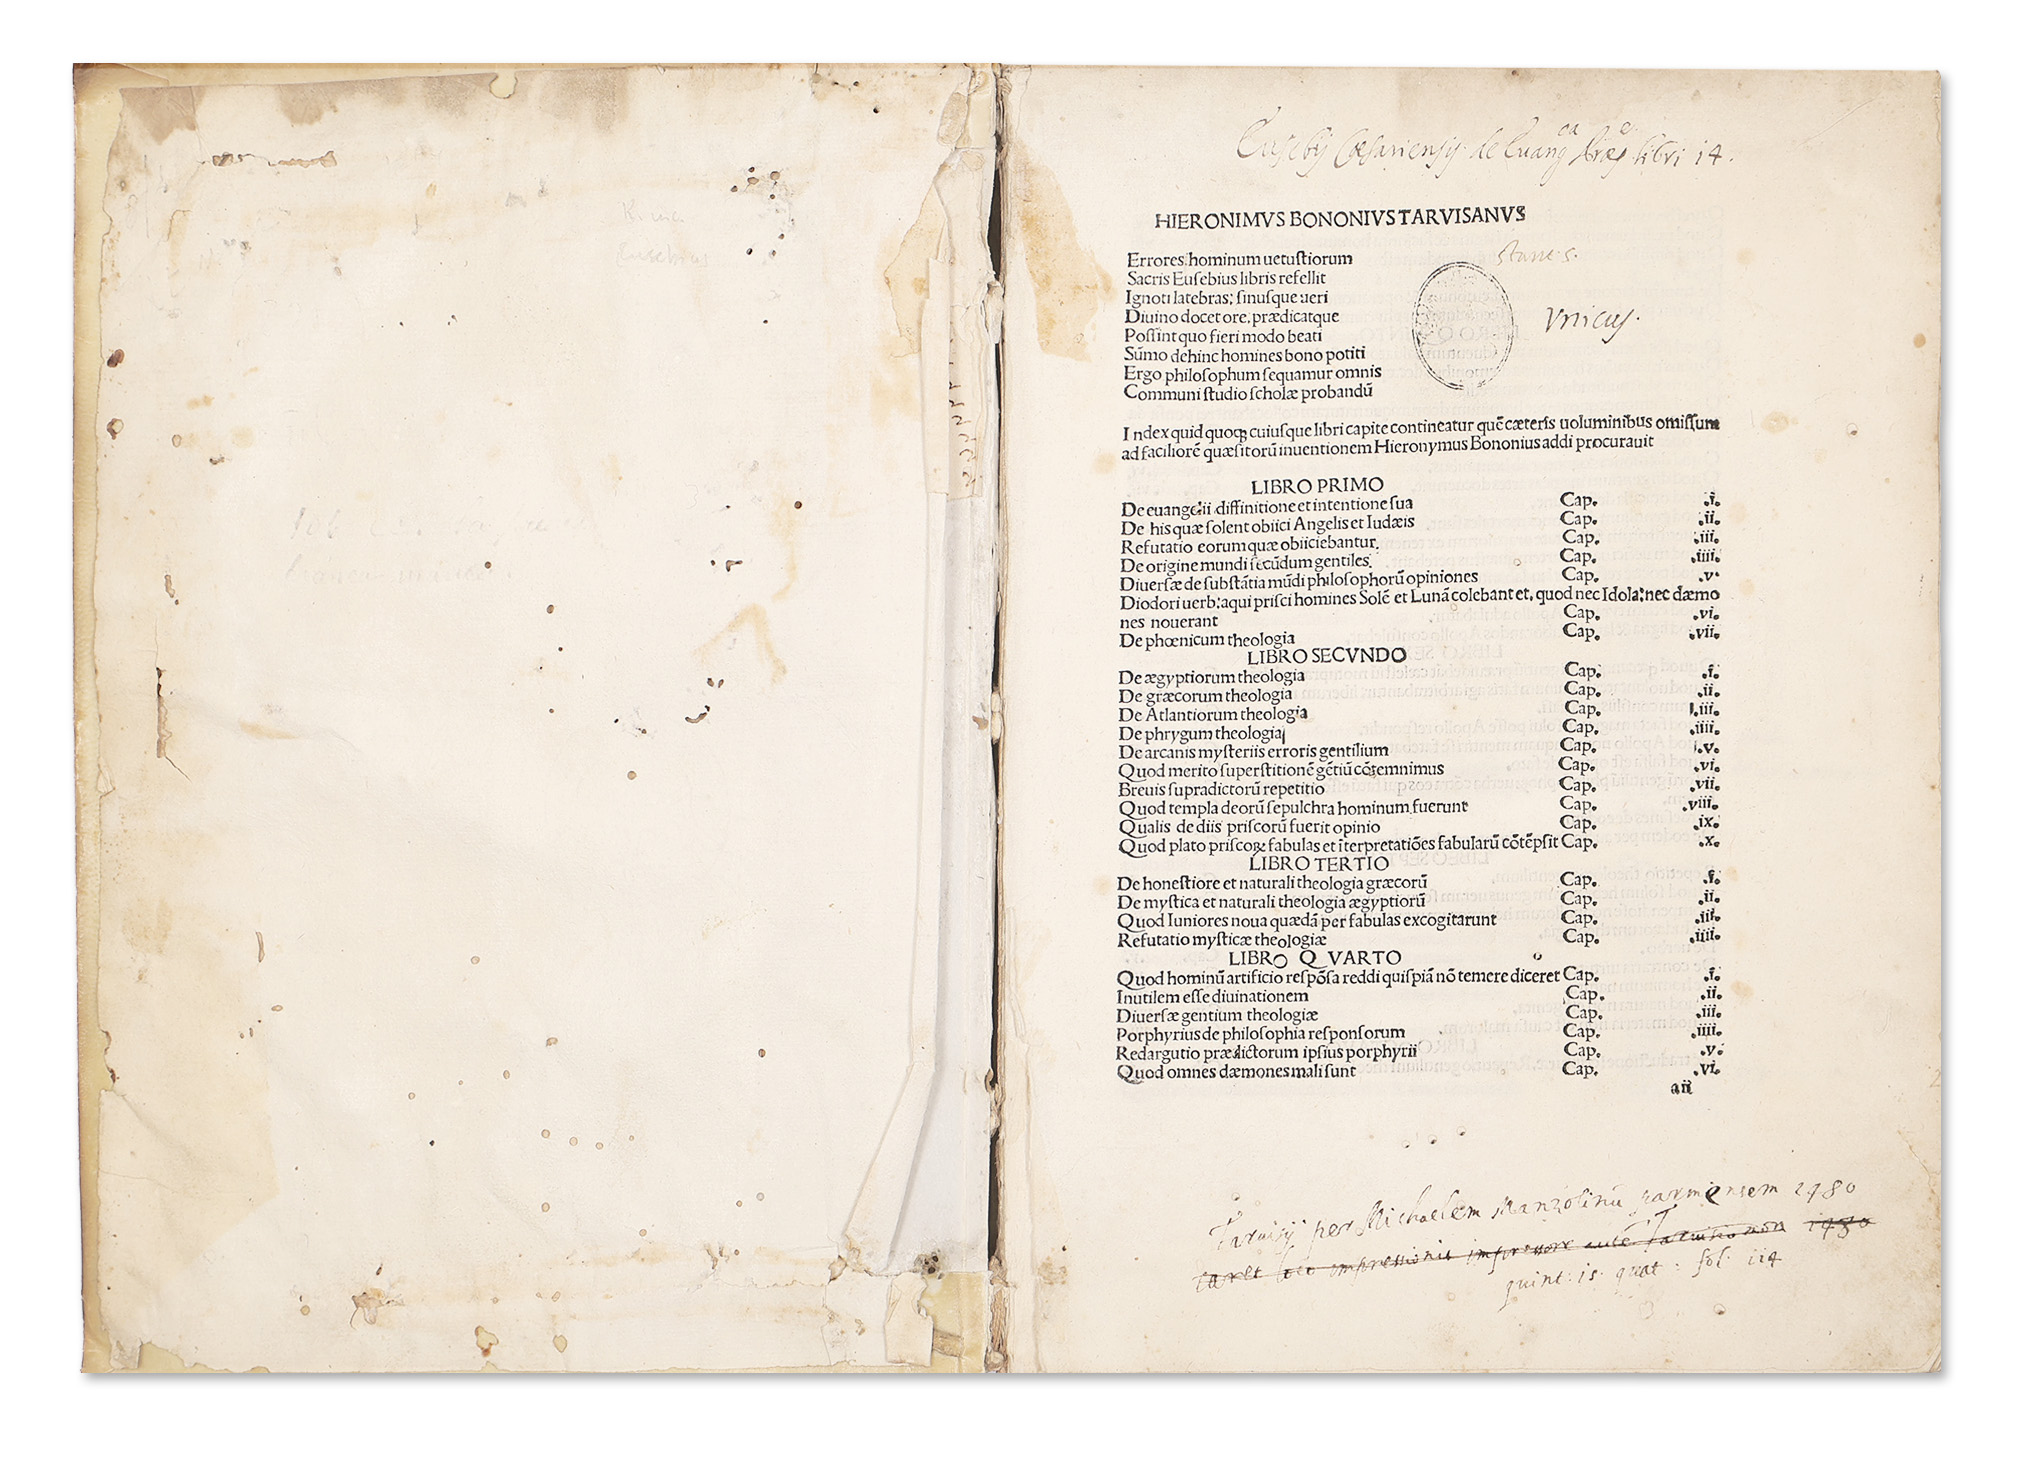 Eusebij Cæsariensis de Euang libri 14.
HIERONIMVS BONONIVS TARVISANVS
Errores hominum uetustiorum
Sacris Eusebius libris refellit
Ignoti latebras; sinusque ueri
Diuino docet ore, prædicatque
Possint quo fieri modo beati
Sūmo dehinc homines bono potiti
Ergo philosophum sequamur omnis
Communi studio scholæ probandū
Vnicus.
Index quid quoqꝫ cuiusque libri capite contineatur quē cæteris uoluminibus omissum
ad faciliorē quæsitorū inuentionem Hieronymus Bononius addi procurauit
LIBRO PRIMO
De euangelii diffinitione et intentione sua Cap. .i.
De his quæ solent obiici Angelis et Iudæis Cap. .ii.
Refutatio eorum quæ obiiciebantur. Cap. .iii.
De origine mundi secūdum gentiles. Cap. .iiii.
Diuersæ de substātia mūdi philosophorū opiniones Cap. .v.
Diodori uerb: aqui prisci homines Solē et Lunā colebant et, quod nec Idola: nec dæmo
nes nouerant Cap. .vi.
De phœnicum theologia Cap. .vii.
LIBRO SECVNDO
De ægyptiorum theologia Cap. .i.
De græcorum theologia Cap. .ii.
De Atlantiorum theologia Cap. .iii.
De phrygum theologia Cap. .iiii.
De arcanis mysteriis erroris gentilium Cap. .v.
Quod merito superstitionē gētiū cōtemnimus Cap. .vi.
Breuis supradictorū repetitio Cap. .vii.
Quod templa deorū sepulchra hominum fuerunt Cap. .viii.
Qualis de diis priscorū fuerit opinio Cap. .ix.
Quod plato priscoꝝ fabulas et īterpretatiōes fabularū cōtēpsit Cap. .x.
LIBRO TERTIO
De honestiore et naturali theologia græcorū Cap. .i.
De mystica et naturali theologia ægyptiorū Cap. .ii.
Quod Iuniores noua quædā per fabulas excogitarunt Cap. .iii.
Refutatio mysticæ theologiæ Cap. .iiii.
LIBRO QVARTO
Quod hominū artificio respōsa reddi quispiā nō temere diceret Cap. .i.
Inutilem esse diuinationem Cap. .ii.
Diuersæ gentium theologiæ Cap. .iii.
Porphyrius de philosophia responsorum Cap. .iiii.
Redargutio prædictorum ipsius porphyrii Cap. .v.
Quod omnes dæmones mali sunt Cap. .vi.
aii
Taruisij per Michaelem Manzolinū parmensem 1480
caret loco impressionis impressore 1480
quint: is quat: fol. 114